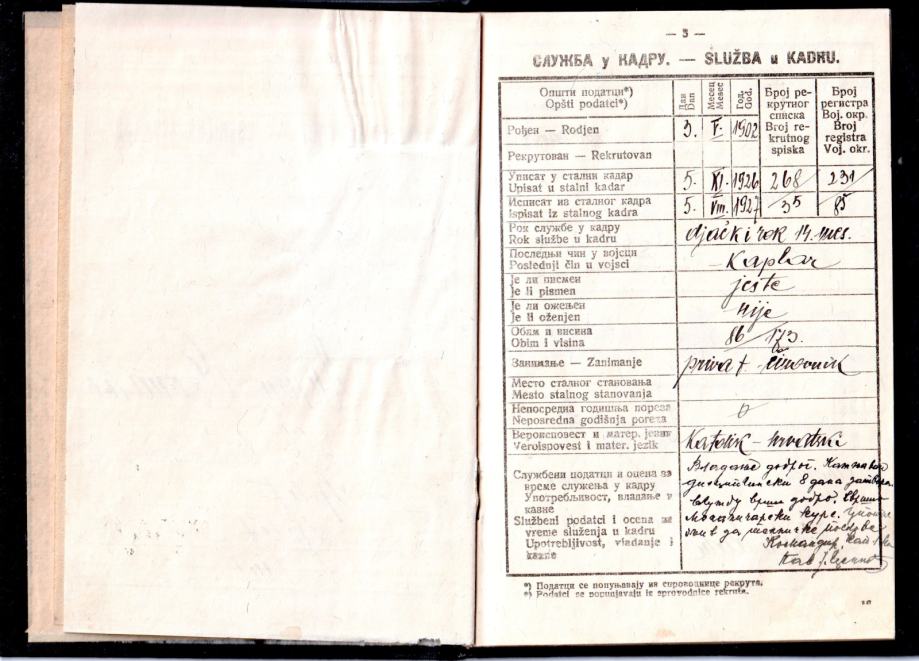 — 3 —
СЛУЖБА у КАДРУ. — SLUŽBA u KADRU.
Општи податци*)
Opšti podatci*)
Дан
Dan
Месец
Mesec
Год.
God.
Број ре-
крутног
списка
Broj re-
krutnog
spiska
Број
регистра
Вој. окр.
Broj
registra
Voj. okr.
Рођен — Rodjen 3. V. 1902
Рекрутован — Rekrutovan
Уписат у стални кадар
Upisat u stalni kadar
5. XI. 1926 268 231
Исписат из сталног кадра
Ispisat iz stalnog kadra
5. VIII. 1927 35 85
Рок службе у кадру
Rok službe u kadru
djački rok 14. mes.
Последњи чин у војсци
Poslednji čin u vojsci
Kaplar
Је ли писмен
Je li pismen
jeste
Је ли ожењен
Je li oženjen
nije
Обим и висина
Obim i visina
86/173.
Занимање — Zanimanje privat činovnik
Место сталног становања
Mesto stalnog stanovanja
Непосредна годишња пореза
Neposredna godišnja poreza
Вероисповест и матер. језик
Veroispovest i mater. jezik
Katolik – hrvatski
Службени податци и оцена за
време служења у кадру
Употребљивост, владање и
казне
Službeni podatci i ocena za
vreme služenja u kadru
Upotrebljivost, vladanje i
kazne
Владање добро. Кажњаван
дисциплински 8 дана затвора.
службу врши добро.
курс.
Командир,
*) Податци се попуњавају из спроводнице рекрута.
*) Podatci se popunjavaju iz sprovodnice rekruta.